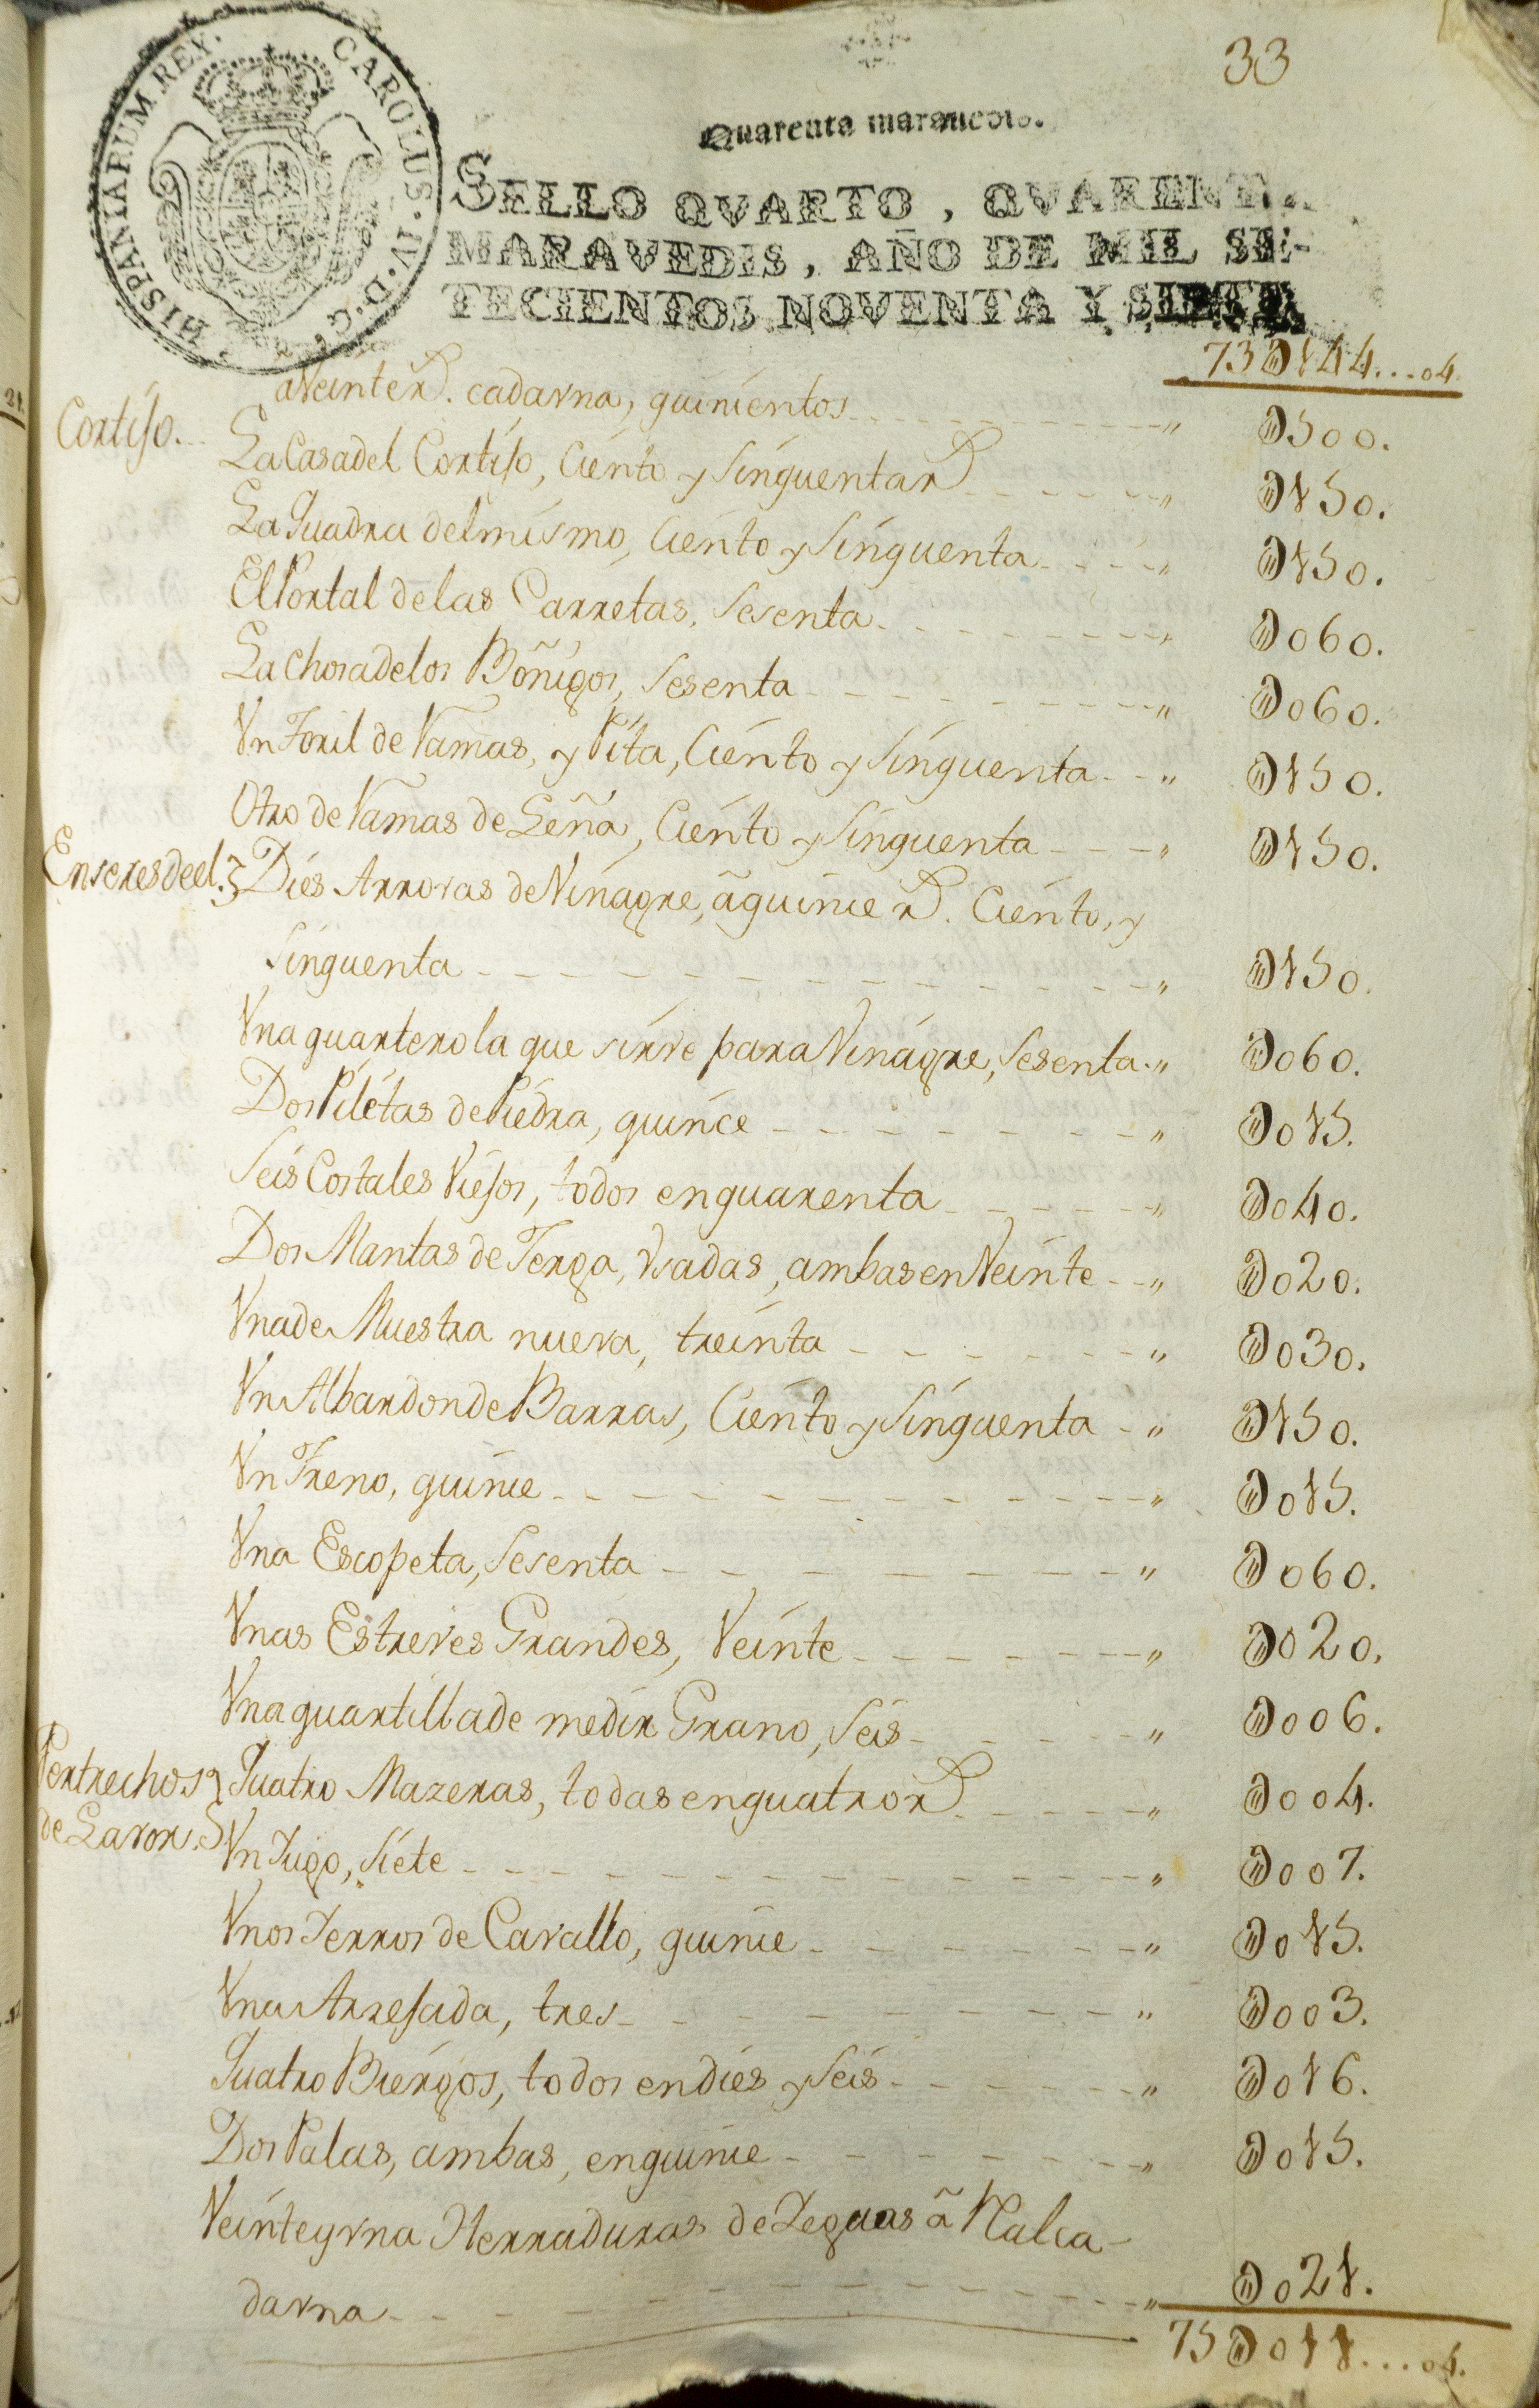 33
HISPANIARUM.REX. CAROLUS.IV.D.G.
Quarenta maravedis.
SELLO QVARTO, QVARENTA
MARAVEDIS, AÑO DE MIL SE-
TECIENTOS NOVENTA Y SIETE
73 D144...04.
a Veinte R. cada vna, quinientos D500.
Cortijo.
La Casa del Cortijo, Ciento y Sinquenta R D150.
La Quadra del mismo, Ciento y Sinquenta D150.
El Portal de las Carretas, Sesenta D060.
La Chosa de los Boñigos, Sesenta D060.
Vn Toril de Ramas, y Pita, Ciento y Sinquenta D150.
Otro de Ramas de Leña, Ciento y Sinquenta D150.
Enseres de el. Dies Arrovas de Vinagre, â quince R. Ciento, y
Sinquenta D150.
Vna quarterola que sirve para Vinagre, Sesenta D060.
Dos Piletas de Piedra, quince D015.
Seis Costales Viejos, todos en quarenta D040.
Dos Mantas de Jerga, Vsadas, ambas en Veinte D020.
Vna de Muestra nueva, treinta D030.
Vn Albardon de Barras, Ciento y Sinquenta D150.
Vn Freno, quince D015.
Vna Escopeta, Sesenta D060.
Vnas Estreves Grandes, Veinte D020.
Vna quartilla de medir Grano, Seis D006.
Pertrechos de Lavor. Quatro Mazeras, todas en quatro R D004.
Vn Jugo, Siete D007.
Vnos Ferros de Cavallo, quince D015.
Vna Arrejada, tres D003.
Quatro Biergos, todos en dies y Seis D016.
Dos Palas, ambas, en quince D015.
Veinte y vna Herraduras de Yeguas â R al ca-
da vna D021.
75 D011...04.